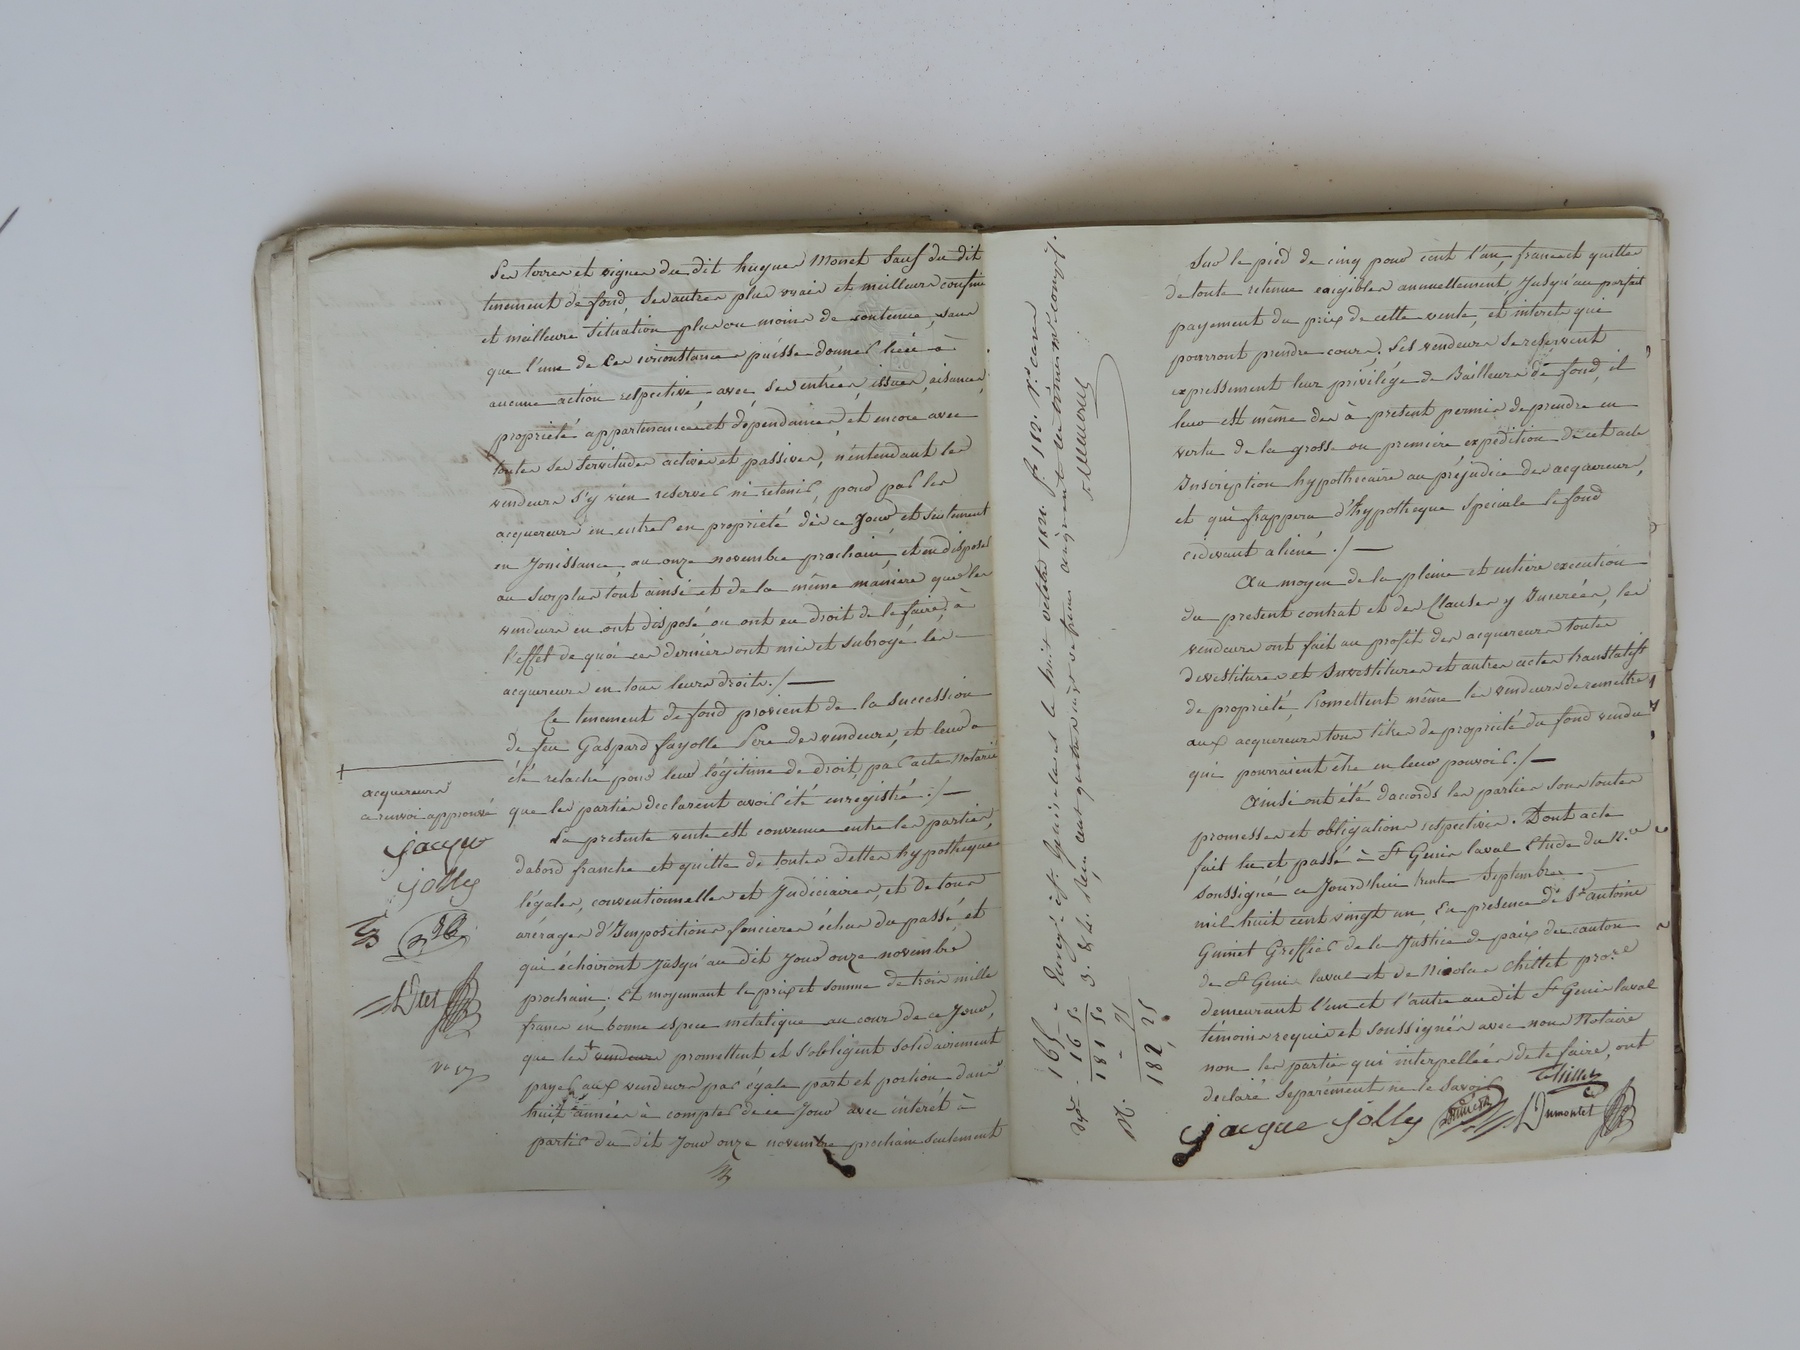 Les terres et vignes du dit hugues Monet Sauf du dit
tenement de fond, Ses autres plus vrais et meilleurs confins
et meilleure Situation plus ou moins de contenue, sans
que l'une de Ces circonstances puisse donner lieu à
aucune action respective, avec ses entrées, issues, aisances,
proprieté appartenances et dépendances, et encore avec
toutes ses servitudes actives et passives, n'entendant les
vendeurs s'y rien reserver ni retenir, pour par les
acquereurs en entrer en propriété dès ce Jour, et seulement
en Jouissance au onze novembre prochain, et en disposer
au Surplus tout ainsi et de la même manière que les
vendeurs en ont disposé, ou ont eu droit de le faire, à
l'effet de quoi ces derniers ont mis et subrogé les
acquereurs en tous leurs droits ./.
Ce tenement de fond provient de la Succession
de feu Gaspard fayolle Pere des vendeurs, et leur a
été relaché pour leur légitime de droit, par acte Notarié
que les parties declarent avoir été enregistré ./.
La presente vente est convenue entre les parties,
dabord franche et quitte de toutes dettes hypotheques
légales, conventionnelles et Judiciaires, et De tous
arérages d'Impositions foncieres échus du passé, et
qui échoiront Jusqu'au dit Jour onze novembre
prochain; Et moyennant le prix et somme de trois mille
francs en bonne espece métalique au cours de ce Jour,
que les + vendeurs promettent et s'obligent solidairement
payer aux vendeurs par égale part et portion dans
huit années à compter de ce Jour avec intérêt à
partir du dit Jour onze novembre prochain seulement
acquereurs
ce renvoi approuvé
jacque
jolly
Sur le pied de cinq pour cent l'an, francs et quittes
de toute retenue exigibles annuellement, Jusqu'au parfait
payement du prix de cette vente, et interets qui
pourront prendre cours. Les vendeurs Se reservent
expressement leur privilége de Bailleurs de fond, il
leur est même des à present permis de prendre en
vertu de la grosse ou premiere expédition de cet acte
Inscription hypothécaire au préjudice des acquereurs,
et qui frappera d'hypotheque Speciale le fond
cidevant aliené ./.
Au moyen de la pleine et entiere execution
du present contrat et des Clauses y Inserées, les
vendeurs ont fait au profit des acquereurs toutes
devestitures et Investitures et autres actes translatifs
de propriété, Promettent même les vendeurs de remettre
aux acquereurs tous titres de propriété du fond vendu
qui pourraient être en leur pouvoir ./.
Ainsi ont été daccords les parties sous toutes
promesses et obligations respectives. Dont acte
fait lu et passé à St Genis laval Etude du Nre
soussigné ce Jourd'hui trente Septembre
mil huit cent vingt un, En presence de Sr antoine
Guinet Greffier de la Justice de paix du canton
de St Genis laval et de Nicolas Chillet pro.re
demeurant l'un et l'autre audit St Genis laval
témoins requis et soussignés avec nous Notaire
non les parties qui interpellées de le faire, ont
declaré Separément ne le savoir
Chillet
jacque jolly Dumortet
165
16 50
181 50
182, 25